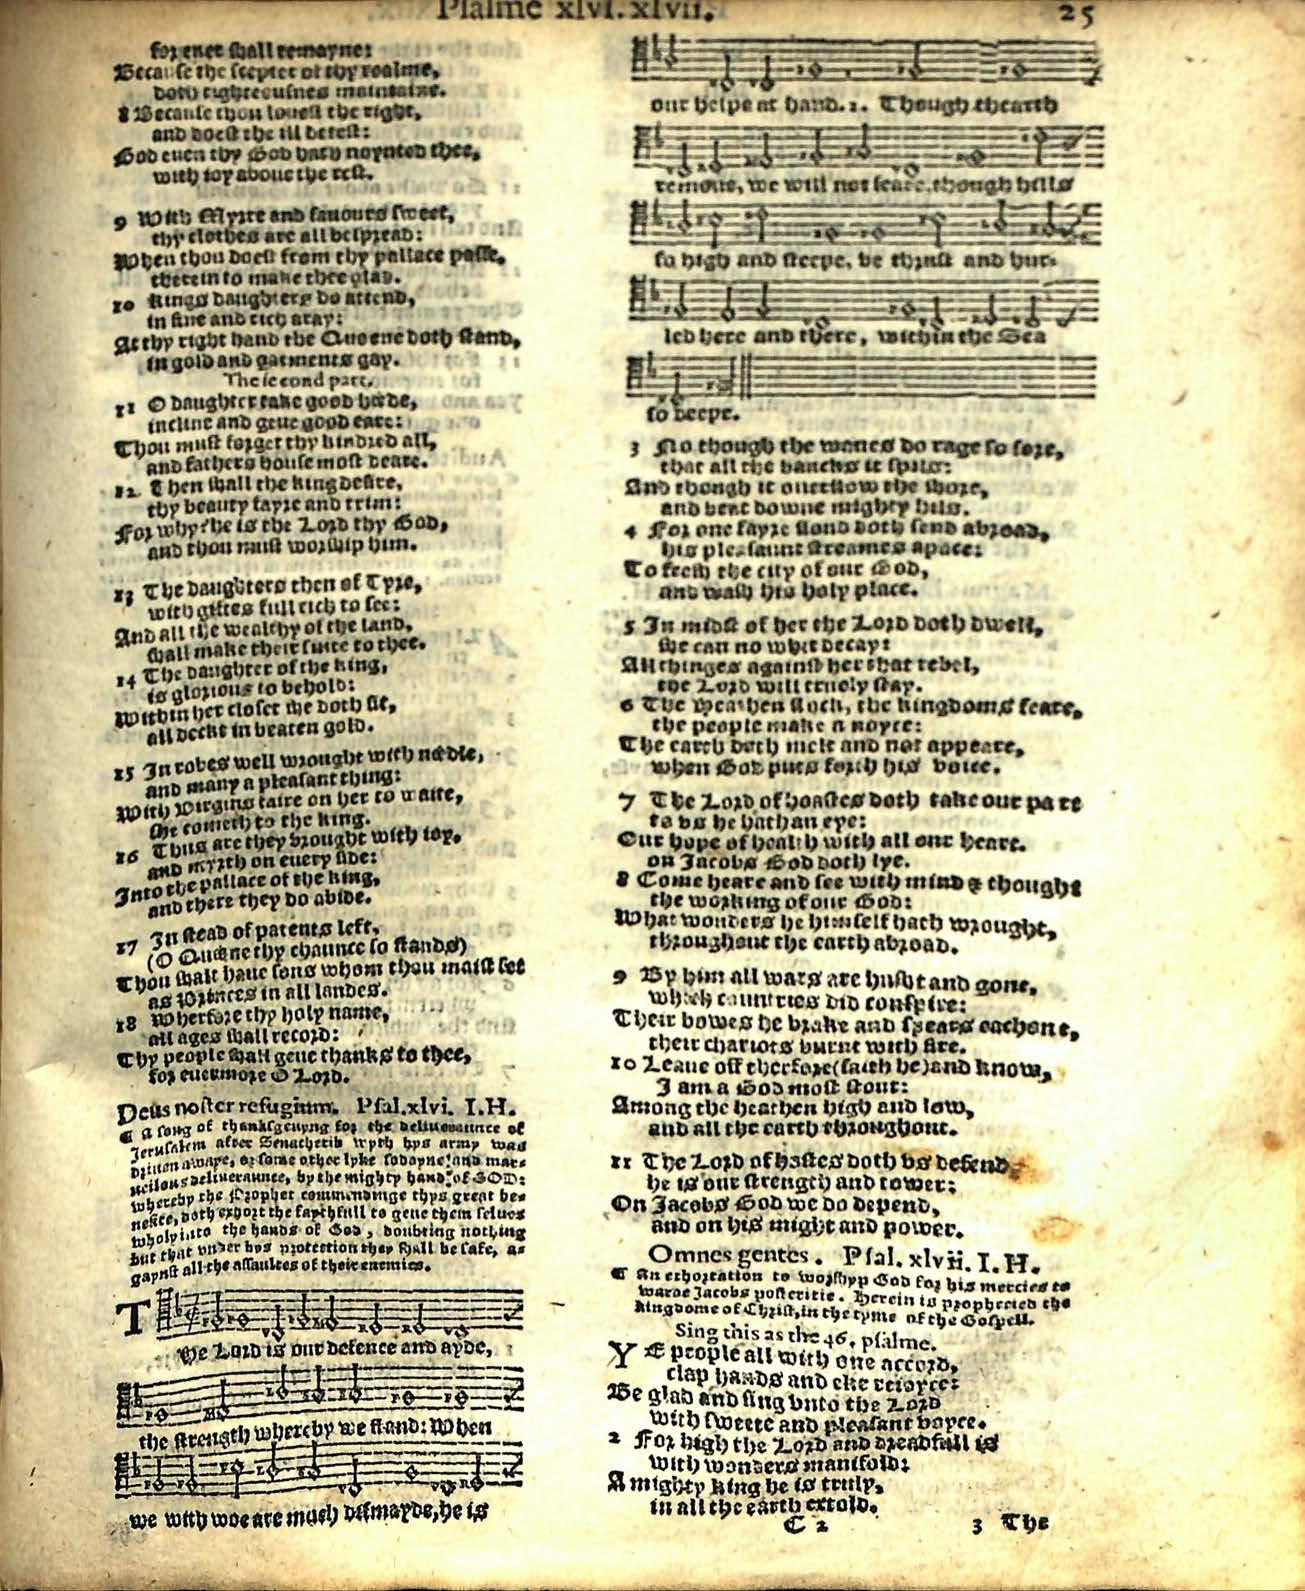 Psalme xlvi. xlvii. 25
for euer shall remayne:
Because the scepter of thy realme,
doth righteousnes maintaine.
8 Because thou louest the right,
and doest the ill detest:
God euen thy God hath noynted thee,
with ioy aboue the rest.
9 With Myrre and sauours sweet,
thy clothes are all bespread:
When thou doest from thy pallace passe,
therein to make thee glad.
10 Kings daughters do attend,
in fine and rich aray:
At thy right hand the Queene doth stand,
in gold and garments gay.
The second part.
11 O daughter take good heede,
incline and geue good eare:
Thou must forget thy kindred all,
and fathers house most deare.
12 Then shall the king desire,
thy beauty fayre and trim:
For why? he is the Lord thy God,
and thou must worship him.
13 The daughters then of Tyre,
with giftes full rich to see:
And all the wealthy of the land,
shall make their suite to thee.
14 The daughter of the king,
is glorious to behold:
Within her closet she doth sit,
all deckt in beaten gold.
15 In robes well wrought with nedle,
and many a pleasant thing:
With virgins faire on her to waite,
she cometh to the king.
16 Thus are they brought with ioy,
and myrth on euery side:
Into the pallace of the king,
and there they do abide.
17 In stead of parents left,
(O Queene thy chaunce so stands)
Thou shalt haue sons whom thou maist set
as Princes in all landes.
18 Wherfore thy holy name,
all ages shall record:
Thy people shall geue thanks to thee,
for euermore O Lord.
Deus noster refugium. Psal. xlvi. I. H.
¶ A song of thanksgeuyng for the deliueraunce of
Jerusalem after Senacherib wyth hys army was
driuen awaye, or some other lyke sodayne and mar-
ueilous deliueraunce, by the mighty hand of GOD:
whereby the Prophet commendinge thys great be-
nefite, doth exhort the faythfull to geue them selues
wholy into the hands of God, doubting nothing
but that vnder hys protection they shall be safe, a-
gaynst all the assaultes of their enemies.
The Lord is our defence and ayde,
the strength whereby we stand: When
we with woe are much dismayde, he is
our helpe at hand. 2. Though thearth
remoue, we will not feare, though hills
so high and steepe, be thrust and hur-
led here and there, within the Sea
so deepe.
3 No though the waues do rage so sore,
that all the bancks it spils:
And though it ouerflow the shore,
and beat downe mighty hils.
4 For one fayre floud doth send abroad,
his pleasaunt streames apace:
To fresh the city of our God,
and wash his holy place.
5 In midst of her the Lord doth dwell,
she can no whit decay:
All thinges against her that rebel,
the Lord will truely stay.
6 The Heathen flock, the kingdoms feare,
the people make a noyce:
The earth doth melt and not appeare,
when God puts forth his voice.
7 The Lord of hoastes doth take our part
to vs he hath an eye:
Our hope of health with all our heart,
on Jacobs God doth lye.
8 Come heare and see with mind & thought
the working of our God:
What wonders he himself hath wrought,
throughout the earth abroad.
9 By him all wars are husht and gone,
which countries did conspire:
Their bowes he brake and spears eachone,
their chariots burnt with fire.
10 Leaue off therfore (saith he) and know,
I am a God most stout:
Among the heathen high and low,
and all the earth throughout.
11 The Lord of hostes doth vs defend,
he is our strength and tower:
On Jacobs God we do depend,
and on his might and power.
Omnes gentes. Psal. xlvii. I. H.
¶ An exhortation to worshyp God for his mercies to
warde Jacobs posteritie. Herein is prophecied the
kingdome of Christ, in the tyme of the Gospell.
Sing this as the 46. psalme.
YE people all with one accord,
clap hands and eke reioyce:
Be glad and sing vnto the Lord
with sweete and pleasant voyce.
2 For high the Lord and dreadfull is
with wonders manifold:
A mighty king he is truly,
in all the earth extold.
C 2 3 The